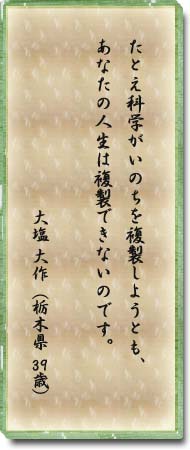 たとえ科学がいのちを複製しようとも、
あなたの人生は複製できないのです。
大塩 大作 (栃木県 39歳)